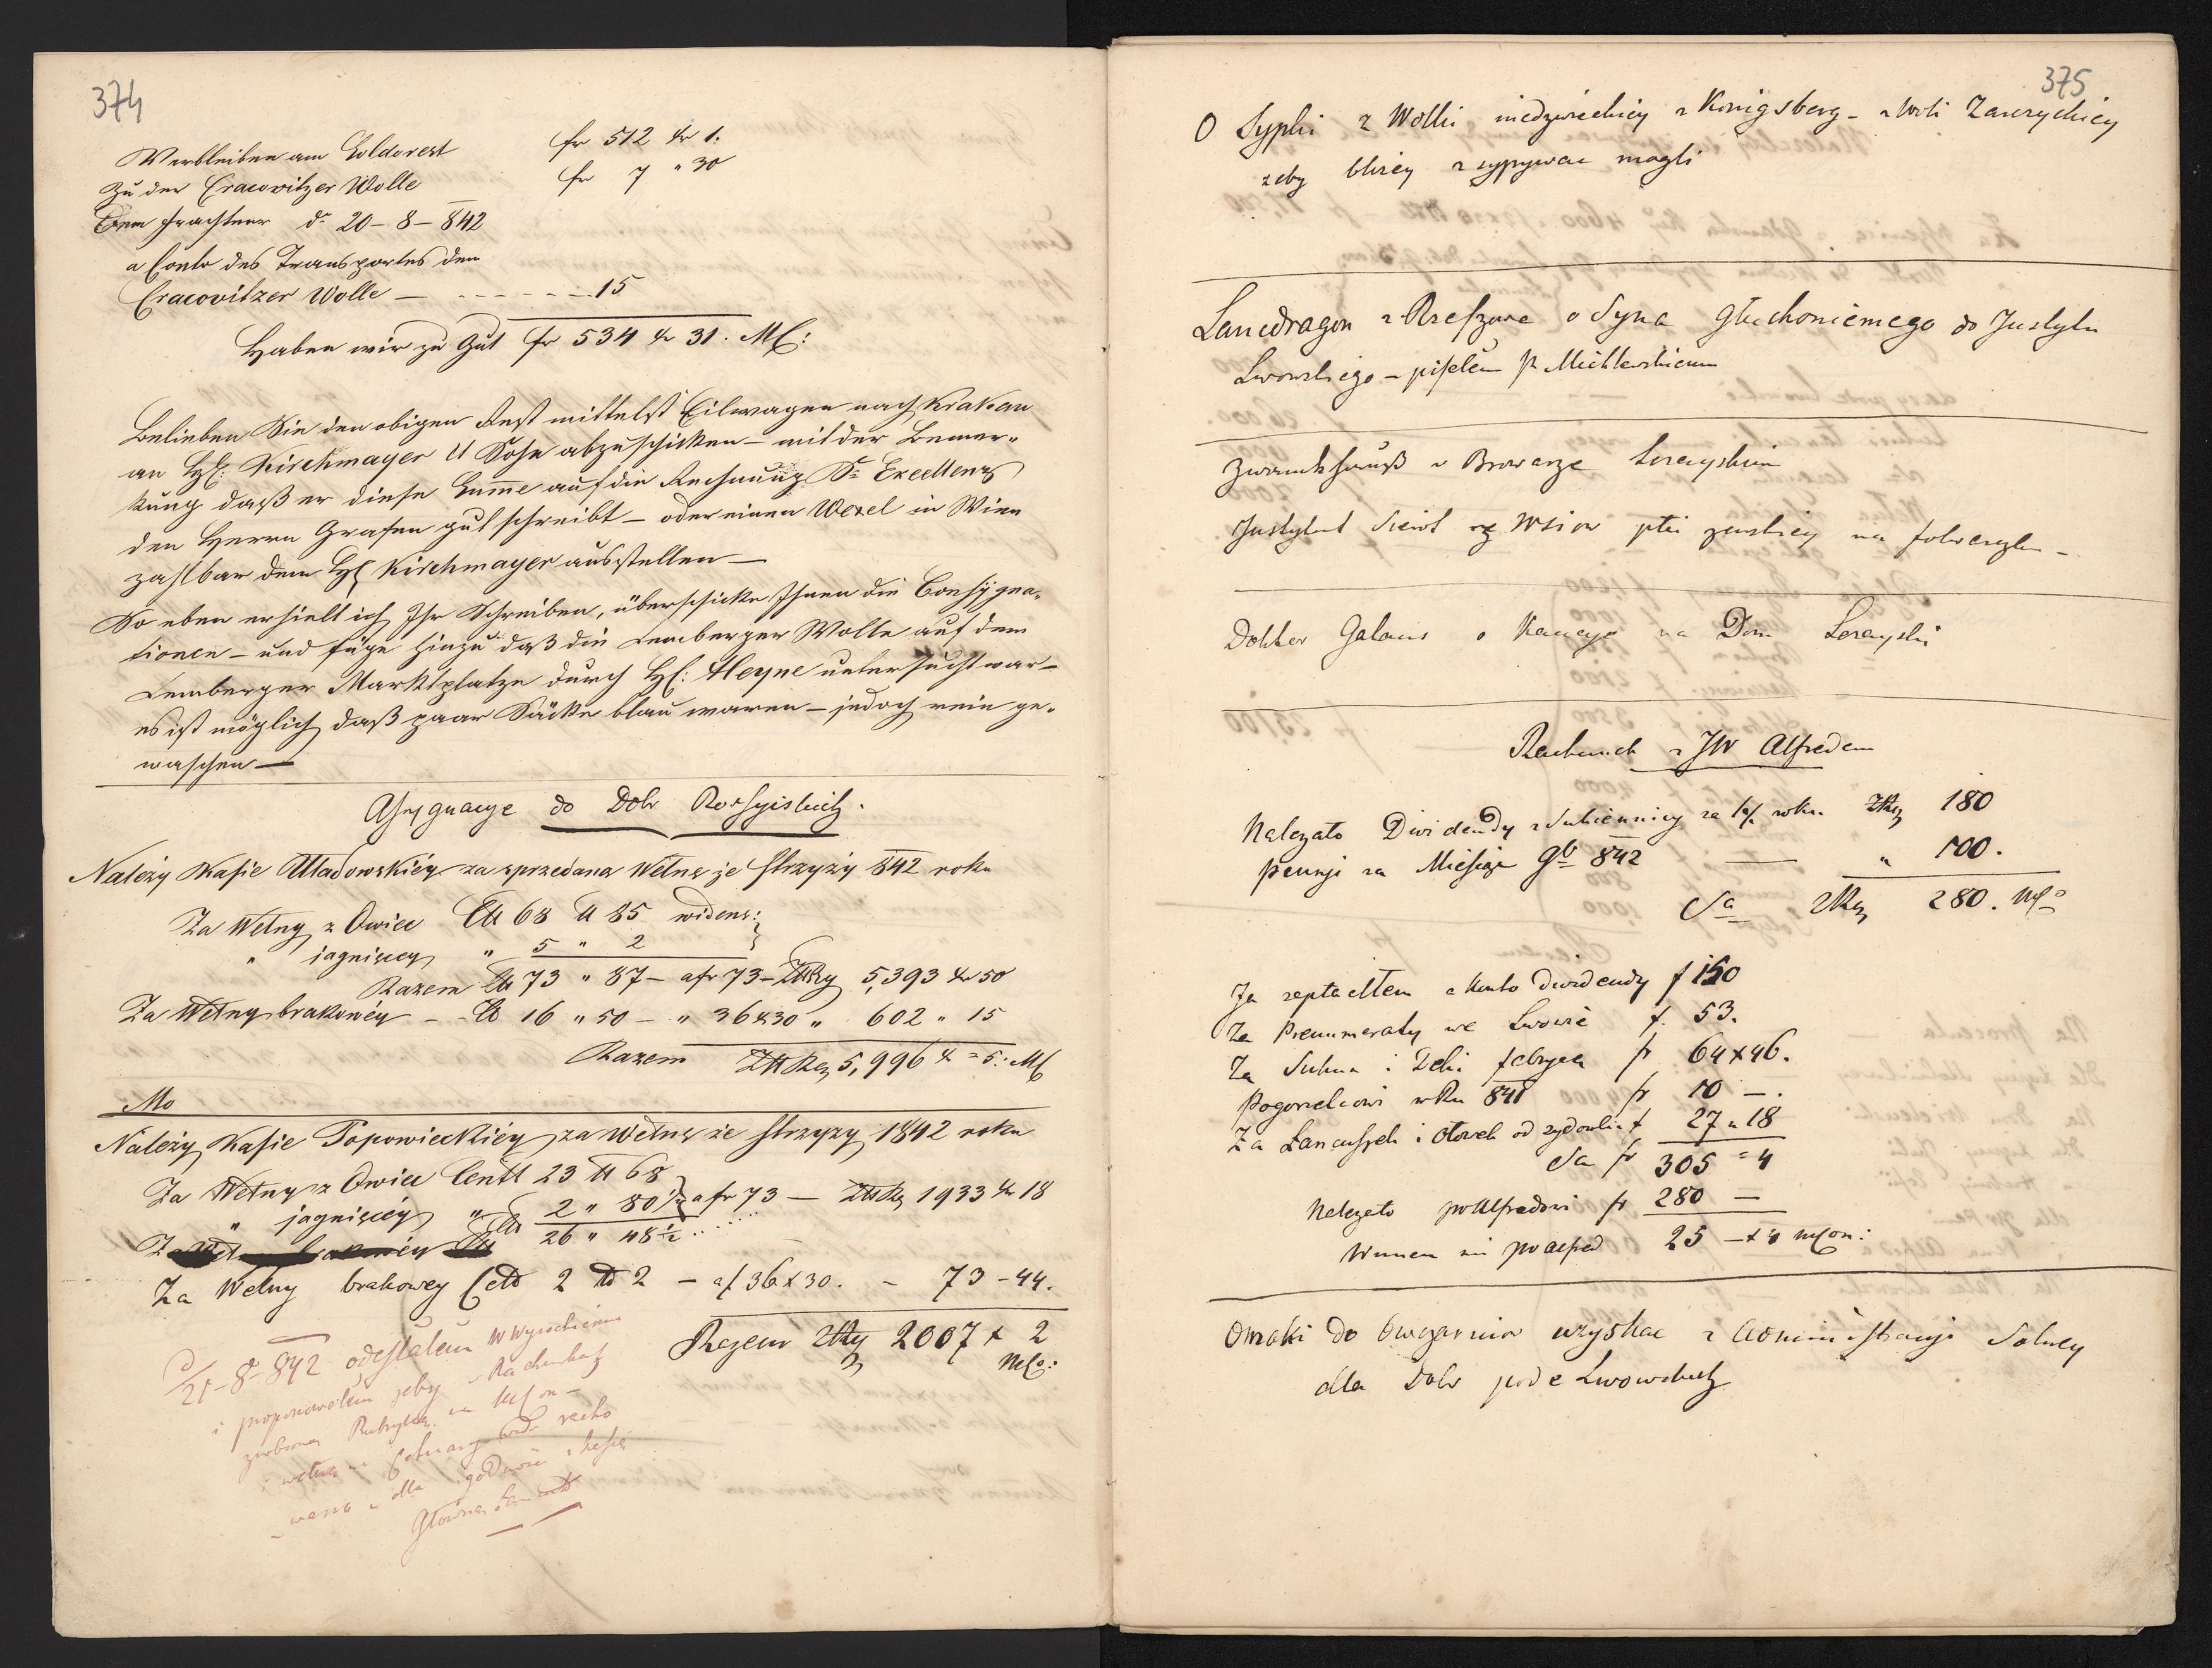 374
Verbleiben am Soldorest fr 512 xr 1.
Zu der Cracovitzer Wolle fr 7 " 30
Dem Frachter do 20-8-842
a Conto des Transportes der
Cracovitzer Wolle — - - - - - 15
Haben wir zu Gut fr 534 xr 31. MC:
Belieben Sie den obigen Rest mittelst Eilwagen nach Krakau
an H: Kirchmayer & Sohn abzuschicken – mit der Bemer-
kung daß er diese Summe auf die Rechnung Sr Excellenz
den Herrn Grafen gut schreibt – oder einen Wexel in Wien
zahlbar dem H Kirchmayer ausstellen —
So eben erhielt ich Ihr Schreiben, überschicke Ihnen die Consygna-
tionen – und füge hinzu daß die Lemberger Wolle auf dem
Lemberger Marktplatze durch H: Heyne untersucht war –
es ist möglich daß paar Säcke blau waren – jedoch rein ge-
waschen —
Assygnacye do Dobr Rossyiskich.
Należy Kasie Uładowskiéy za sprzedaną Wełnę ze strzyży 842 roku
Za Wełny z Owiec Ctt 68 tt 85 widens:
" jagnięcey " 5 " 2
Razem Ctt 73 " 87 – a fr 73 – ZttRy 5,393 xr 50
Za Wełny brakowéy – - Ct 16 " 50 – " 36x30 " 602 " 15
Razem ZttRey 5,996 x = 5: MC
Mo
Należy Kasie Popowieckiéy za Wełnę ze strzyży 1842 roku
Za Wełny z Owiec Centt 23 tt 68
" jagnięcéy " 2 " 80 1/2 a fr 73 — ZttRy 1933 xr 18
Ctt 26 " 48 1/2
Za Wełny brakowey Cett 2 tt 2 – a f 36x30. – 73 – 44.
Razem ZRy 2007 x 2
MC:
d 21-8-842 odesłałem W Wysockiemu
i proponowałem żeby w Rachunkach
zrobiona Rubryka na MCon –
i wełna
dla zgodności z kassą
Główną
375
O Sypki z Wolki niedzwieckiey z Konigsberg – z Woli Zarczyckiey
zeby bliżey zsypywac mogli
Lanedragon z Rzeszowa o Syna głuchoniemego do Justytu
Lwowskiego – pisałem P Michlewskiemu
Zwankhauß w Browarze Leżayskim
Justytut Sierot ze Wsiow płci żenskiey na folwarzku –
Dokter Galans o Kaucye na Dom Leżayski
Rachunek z JW Alfredem
Należało Dividendy z Sukienniey za 1/2 roku ZRy 180
Pensyi za Miesiąc 9b 842 — " 100.
Sa ZRy 280. MC
Ja zapłaciłem a Konto dividendy f 150
Za Prenumeraty we Lwowie f. 53.
Za Sukna i Deki fabryce fr 64x46.
Pogorzelcowi w Ru 841 fr 10 —.
Za Łancuszek i ołowek od zydowki f 27 " 18
Sa fr 305 = 4
Należało JWAlfredowi fr 280 —
Winien mi JW Alfred 25 – x 4 MCon:
Omoki do Owczarniow uzyskac z Administracyi Solney
dla Dobr pod Lwowskich